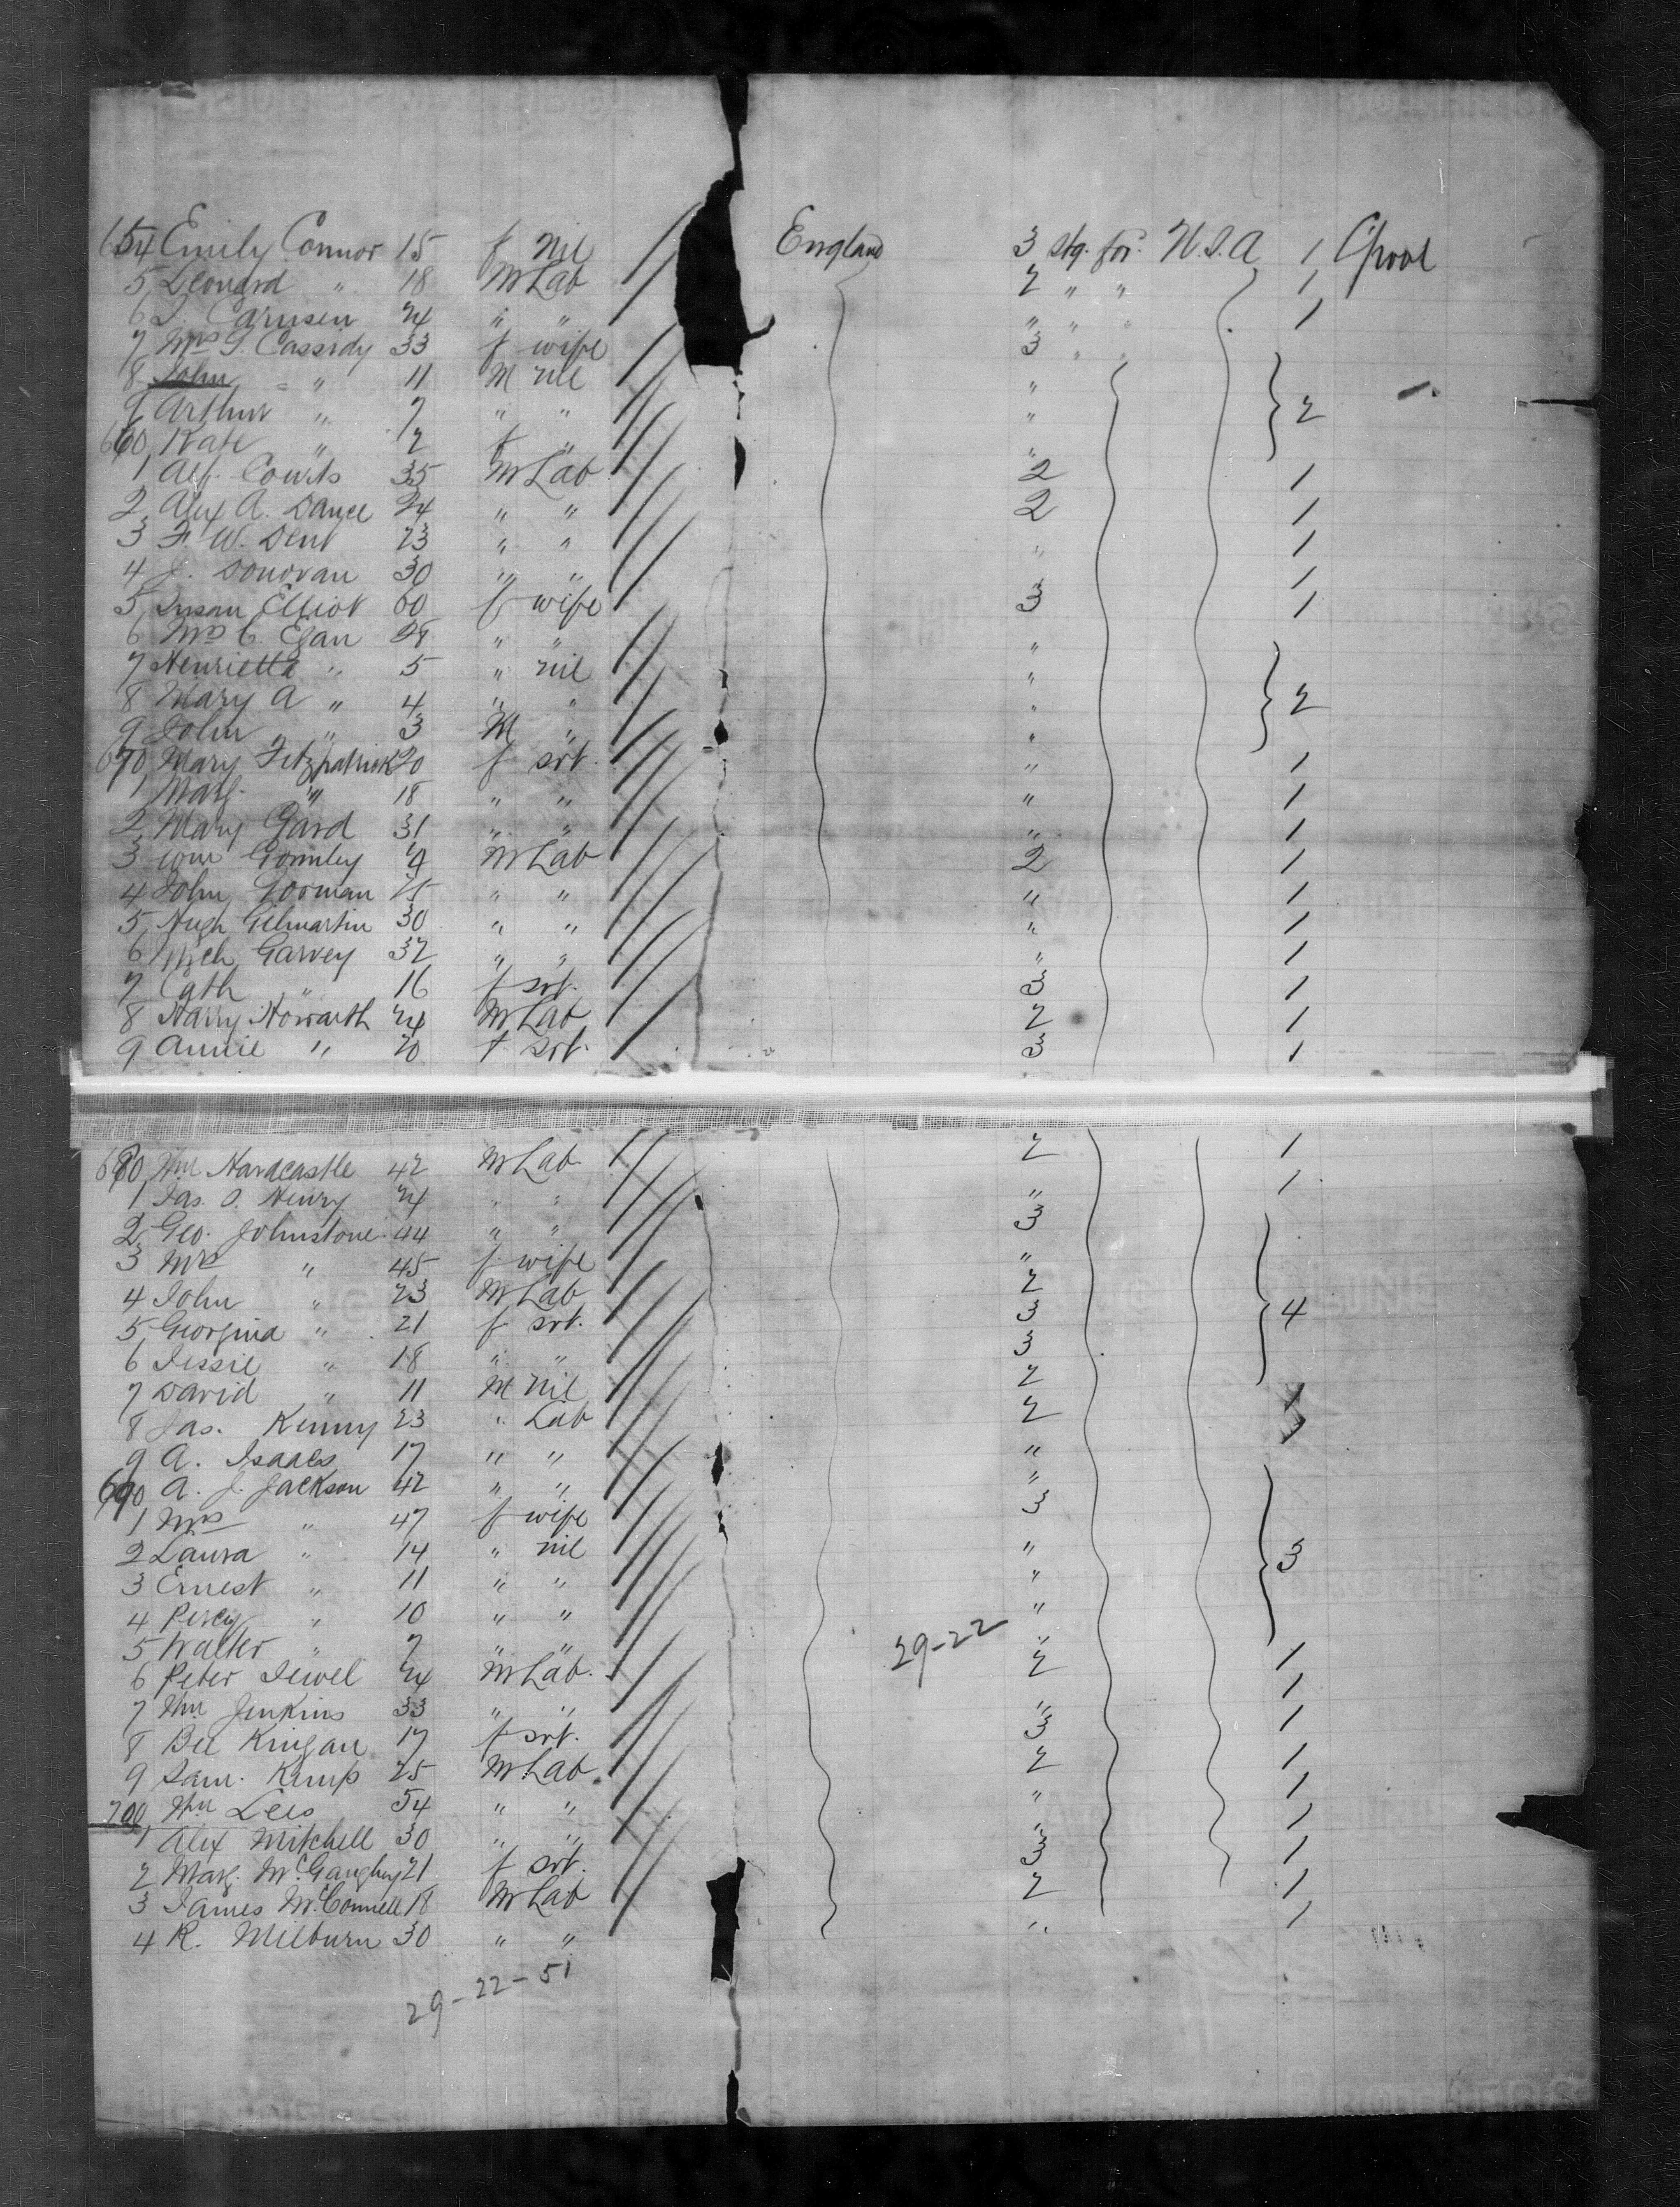 654 Emily Connor 15 f nil England 3 stg. for. U.S.A 1 L'pool
5 Leonard " 18 M Lab 2 " " 1
6 Carusen 24 " " " " " 1
7 Mrs Cassidy 33 f wife 3 " "
8 John " 11 M nil "
9 Arthur " 7 " " " 2
660 Kate " 2 f " "
1 Alf. Coutts 35 M Lab 2 1
2 Alex A. Dance 24 " " 2 1
3 F. W. Dent 23 " " " 1
4 J. Donovan 30 " " 1
5 Susan Elliot 60 f wife 3 1
6 Mrs C. Egan 28 " " "
7 Henrietta " 5 " nil "
8 Mary A " 4 " " " 2
9 John " 3 M " "
670 Mary Fitzpatrick 20 f srt. " 1
1 Marg. " 18 " " " 1
2 Mary Gard 31 " " " 1
3 Wm Gormley 19 M Lab 2 1
4 John Gorman 25 " " " 1
5 Hugh Gilmartin 30 " " " 1
6 Mich Garvey 32 " " " 1
7 Cath " 16 f srt. 3 1
8 Harry Howarth 24 M Lab 2 1
9 Annie " 20 f srt. 3 1
680 Wm Hardcastle 42 M Lab 2 1
1 Jas. O. Henry 24 " " " 1
2 Geo. Johnstone 44 " " 3
3 Mrs " 45 f wife "
4 John " 23 M Lab 2
5 Georgina " 21 f srt. 3 4
6 Jessie " 18 " " 3
7 David " 11 M nil 2
8 Jas. Kenny 23 " Lab 2
9 A. Isaacs 17 " " "
690 A. J. Jackson 42 " " "
1 Mrs " 47 f wife 3
2 Laura " 14 " nil " 3
3 Ernest " 11 " " "
4 Percy " 10 " " "
5 Walter " 7 " " 29-22 "
6 Peter Jewel 24 M Lab. 2 1
7 Wm Jenkins 33 " " " 1
8 Bee Kingan 17 f srt. 3 1
9 Sam. Kemp 25 M Lab 2 1
700 Wm Lees 54 " " " 1
1 Alex Mitchell 30 " " " 1
2 Marg. McGaughey 21 f srt. 3 1
3 James McConnell 18 M Lab 2 1
4 R. Milburn 30 " " " 1
29-22-51